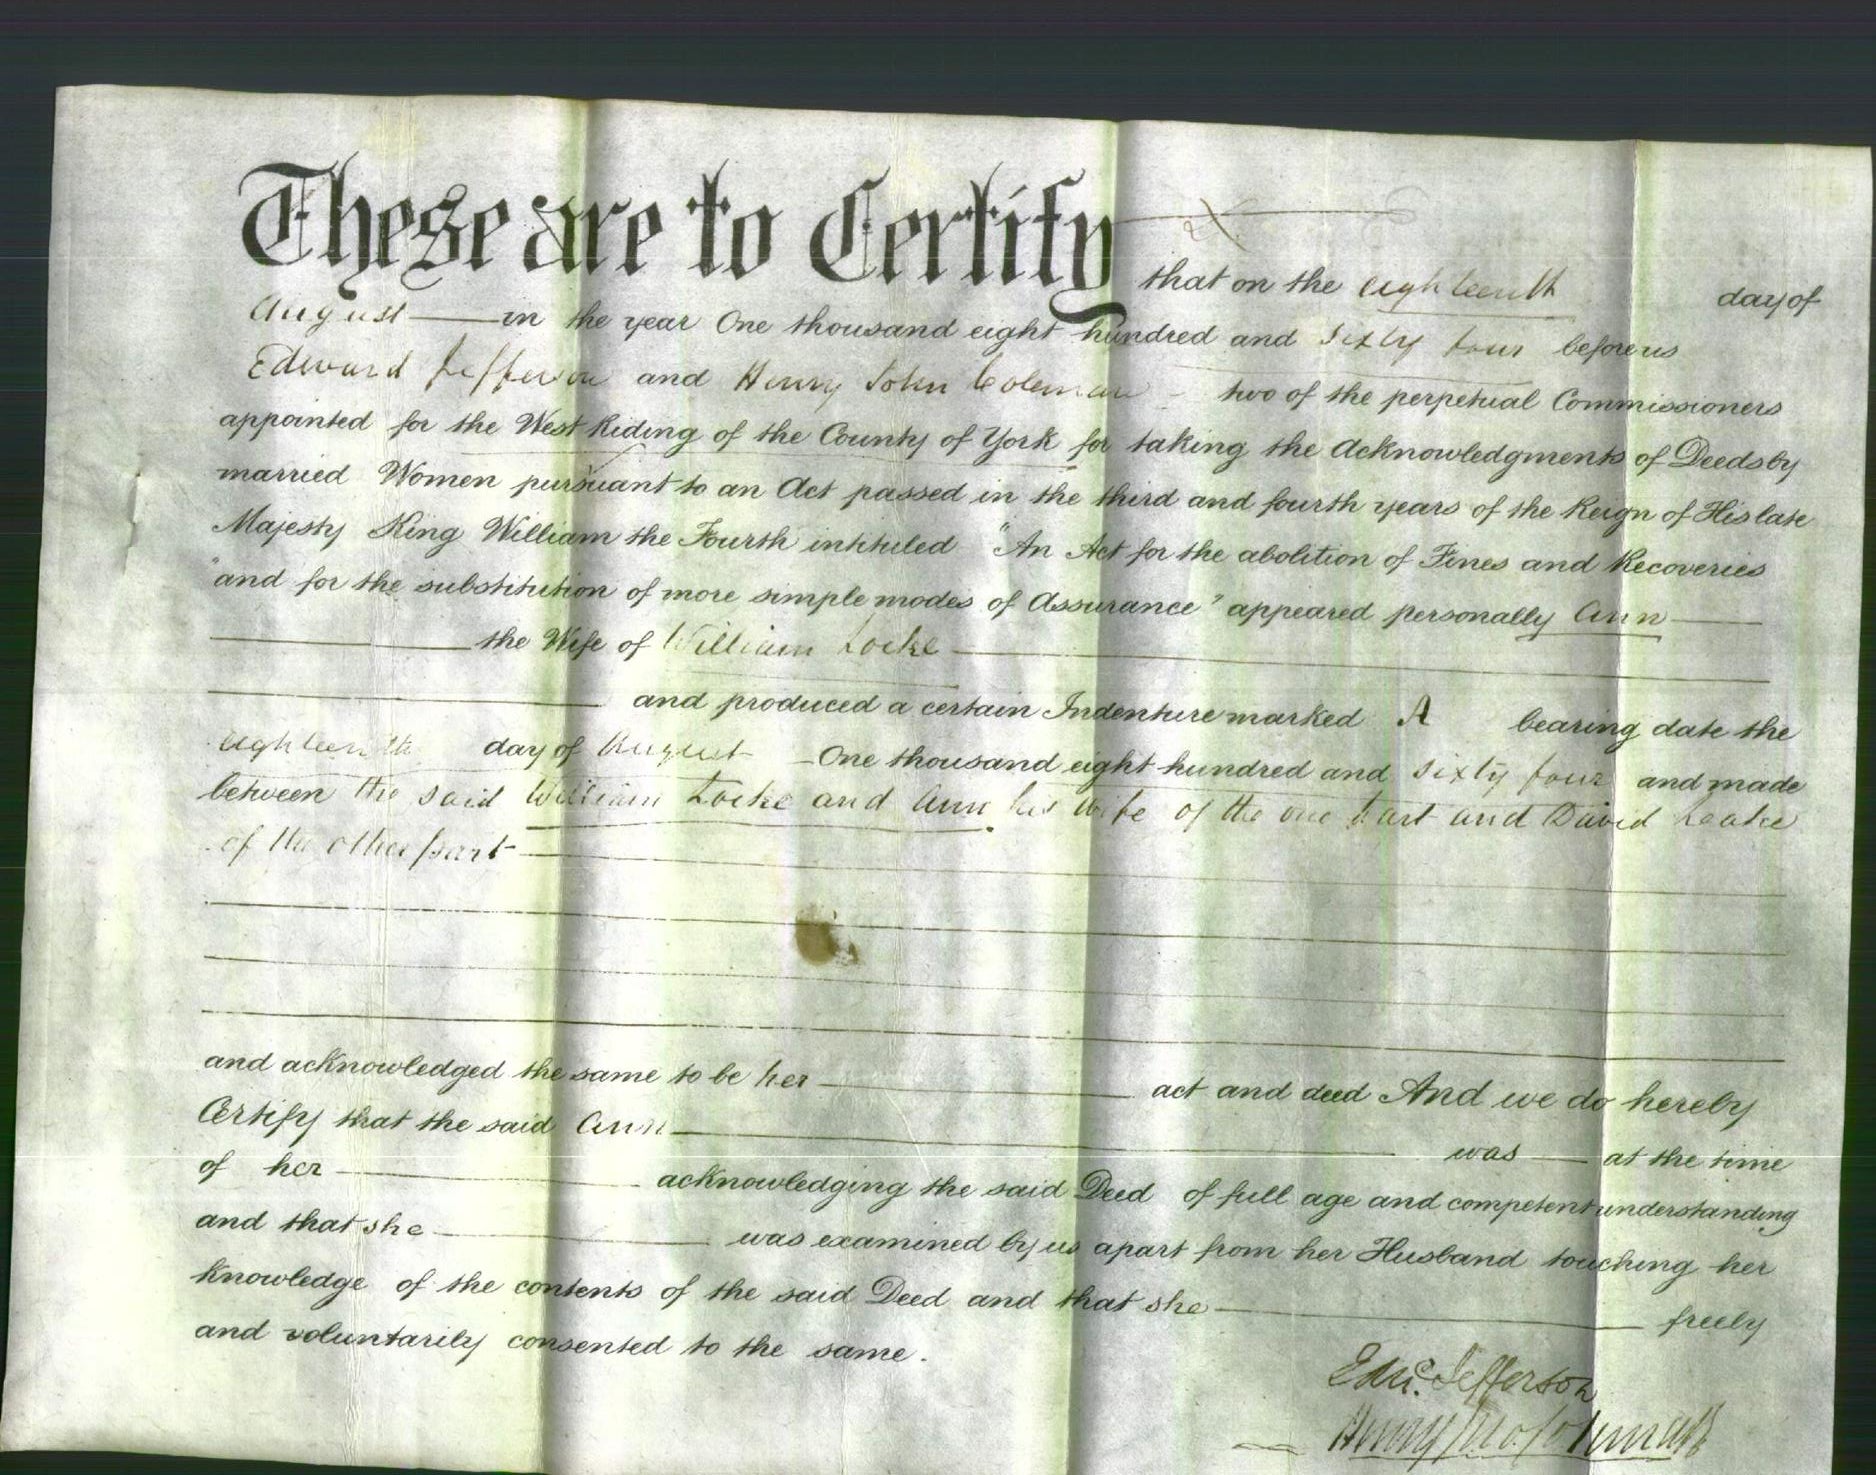 These are to Certify that on the eighteenth day of
August in the year One thousand eight hundred and Sixty four before us
Edward Jefferson and Henry John Coleman two of the perpetual Commissioners
appointed for the West Riding of the County of York for taking the Acknowledgments of Deeds by
married Women pursuant to an Act passed in the third and fourth years of the Reign of His late
Majesty King William the Fourth intituled "An Act for the abolition of Fines and Recoveries
"and for the substitution of more simple modes of Assurance" appeared personally Ann
the Wife of William Locke
and produced a certain Indenture marked A bearing date the
eighteenth day of August One thousand eight hundred and Sixty four and made
between the said William Locke and Ann his Wife of the one part and David Leake
of the other part
and acknowledged the same to be her act and deed And we do hereby
Certify that the said Ann was at the time
of her acknowledging the said Deed of full age and competent understanding
and that she was examined by us apart from her Husband touching her
knowledge of the contents of the said Deed and that she freely
and voluntarily consented to the same.
Edw. Jefferson
Henry Jno Coleman